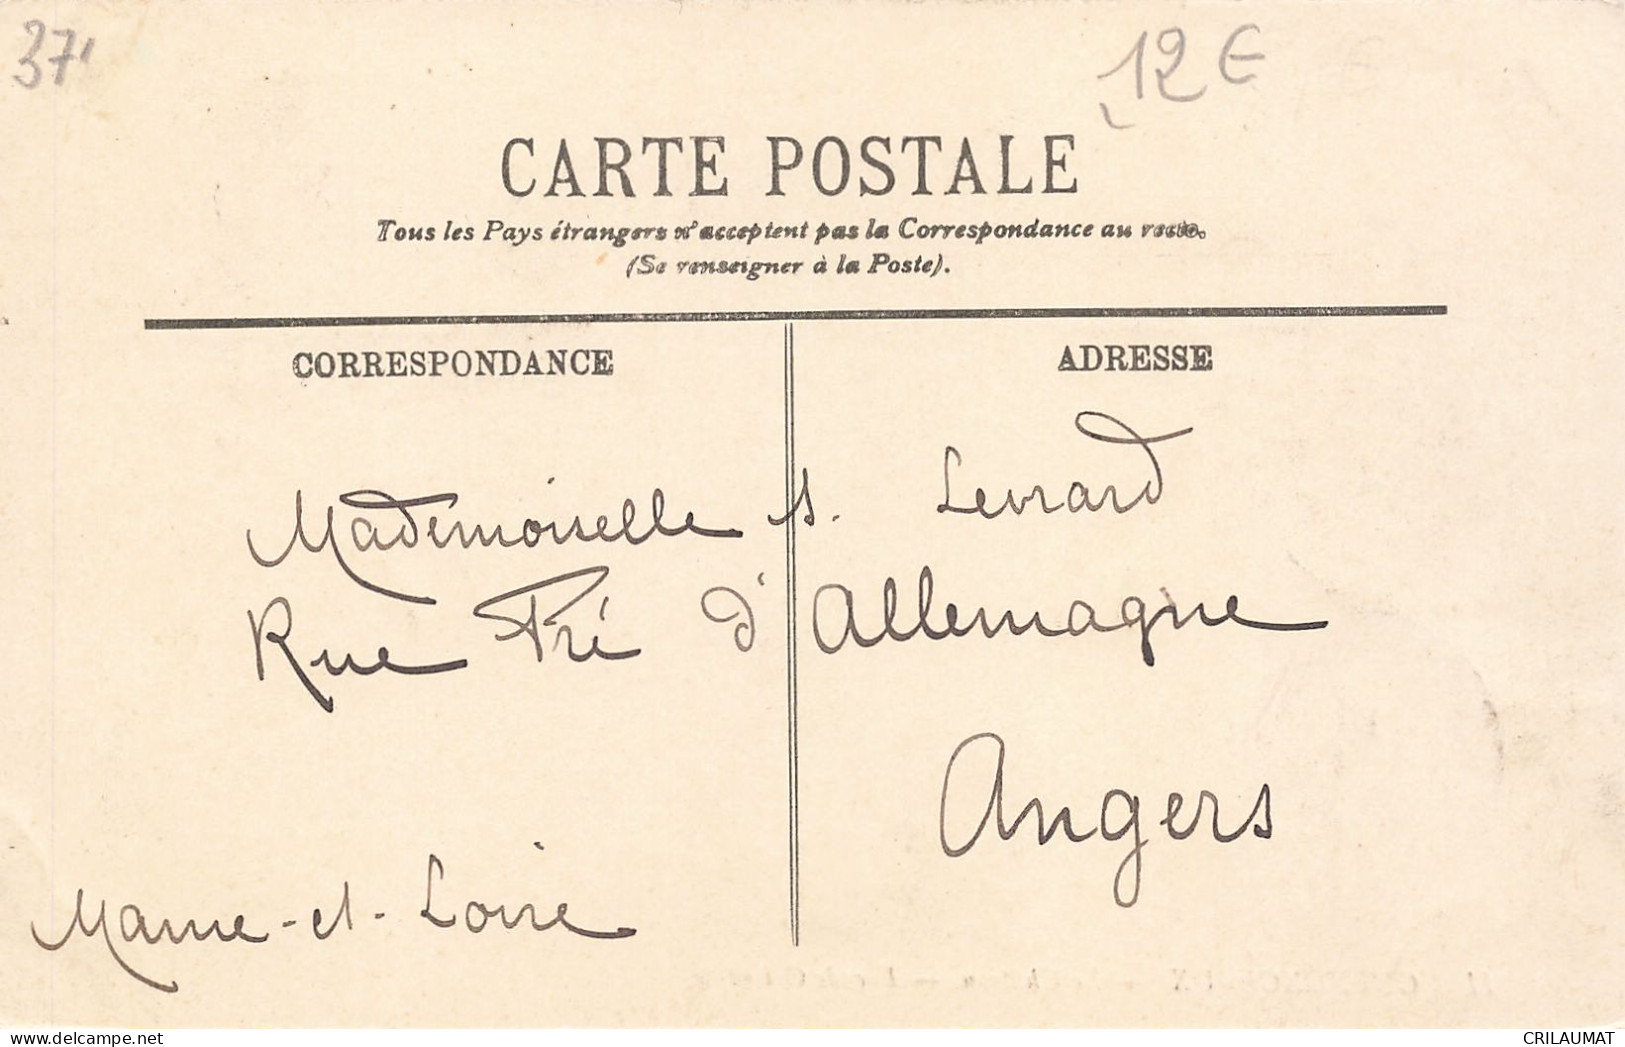 37
12 €
CARTE POSTALE
Tous les Pays étrangers n'acceptent pas la Correspondance au recto.
(Se renseigner à la Poste).
CORRESPONDANCE
ADRESSE
Mademoiselle S. Levrard
Rue Pré d'Allemagne
Angers
Maine-et-Loire
CRILAUMAT